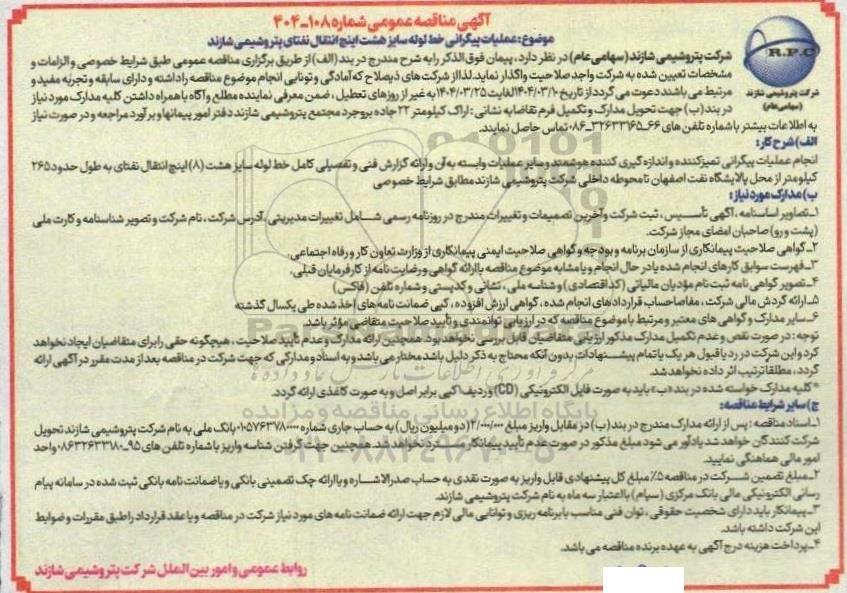 آگهی مناقصه عمومی شماره ۱۰۸-۴۰۴
موضوع: عملیات پیگرانی خط لوله سایز هشت اینچ انتقال نفتای پتروشیمی شازند
R.P.C
شرکت پتروشیمی شازند
(سهامی عام)
شرکت پتروشیمی شازند (سهامی عام) در نظر دارد، پیمان فوق الذکر را به شرح مندرج در بند (الف) از طریق برگزاری مناقصه عمومی طبق شرایط خصوصی و الزامات و
مشخصات تعیین شده به شرکت واجد صلاحیت واگذار نماید. لذا از شرکت های ذیصلاح که آمادگی و توانایی انجام موضوع مناقصه را داشته و دارای سابقه و تجربه مفید و
مرتبط می باشند دعوت می گردد از تاریخ ۱۴۰۴/۰۳/۱۰ لغایت ۱۴۰۴/۰۳/۲۵ به غیر از روزهای تعطیل، ضمن معرفی نماینده مطلع و آگاه با همراه داشتن کلیه مدارک مورد نیاز
در بند (ب) جهت تحویل مدارک و تکمیل فرم تقاضا به نشانی: اراک کیلومتر ۲۲ جاده بروجرد مجتمع پتروشیمی شازند دفتر امور پیمانها و برآورد مراجعه و در صورت نیاز
به اطلاعات بیشتر با شماره تلفن های ۶۶-۳۲۶۳۳۱۶۵-۰۸۶ تماس حاصل نمایند.
الف) شرح کار:
انجام عملیات پیگرانی تمیزکننده و اندازه گیری کننده هوشمند و سایر عملیات وابسته به آن و ارائه گزارش فنی و تفصیلی کامل خط لوله سایز هشت (۸) اینچ انتقال نفتای به طول حدود ۲۶۵
کیلومتر از محل پالایشگاه نفت اصفهان تا محوطه داخلی شرکت پتروشیمی شازند مطابق شرایط خصوصی
ب) مدارک مورد نیاز:
۱-تصاویر اساسنامه، آگهی تأسیس، ثبت شرکت و آخرین تصمیمات و تغییرات مندرج در روزنامه رسمی شامل تغییرات مدیریتی، آدرس شرکت، نام شرکت و تصویر شناسنامه و کارت ملی
(پشت و رو) صاحبان امضای مجاز شرکت.
۲-گواهی صلاحیت پیمانکاری از سازمان برنامه و بودجه و گواهی صلاحیت ایمنی پیمانکاری از وزارت تعاون کار و رفاه اجتماعی.
۳-فهرست سوابق کارهای انجام شده یا در حال انجام و یا مشابه موضوع مناقصه با ارائه گواهی و رضایت نامه از کارفرمایان قبلی.
۴-تصویر گواهی نامه ثبت نام مؤدیان مالیاتی (کد اقتصادی) و شناسه ملی، نشانی و کدپستی و شماره تلفن (فاکس)
۵-ارائه گردش مالی شرکت، مفاصاحساب قراردادهای انجام شده، گواهی ارزش افزوده، کپی ضمانت نامه های اخذ شده طی یکسال گذشته
۶-سایر مدارک و گواهی های معتبر و مرتبط با موضوع مناقصه که در ارزیابی توانمندی و تأیید صلاحیت متقاضی مؤثر باشد.
توجه: در صورت نقص و عدم تکمیل مدارک مذکور ارزیابی متقاضیان قابل بررسی نخواهد بود. همچنین ارائه مدارک و عدم تأیید صلاحیت، هیچگونه حقی را برای متقاضیان ایجاد نخواهد
کرد و این شرکت در رد یا قبول هر یک یا تمام پیشنهادات بدون آنکه محتاج به ذکر دلیل باشد مختار می باشد و به اسناد و مدارکی که جهت شرکت در مناقصه بعد از مدت مقرر در آگهی ارائه
گردد، مطلقا ترتیب اثر داده نخواهد شد.
* کلیه مدارک خواسته شده در بند «ب» باید به صورت فایل الکترونیکی (CD) و ردیف ۱ کپی برابر اصل و به صورت کاغذی ارائه گردد.
ج) سایر شرایط مناقصه:
۱-اسناد مناقصه: پس از ارائه مدارک مندرج در بند (ب) در مقابل واریز مبلغ ۲/۰۰۰/۰۰۰ (دو میلیون ریال) به حساب جاری شماره ۰۱۰۵۷۶۳۷۸۰۰۰ بانک ملی به نام شرکت پتروشیمی شازند تحویل
شرکت کنندگان خواهد شد یادآور می شود مبلغ مذکور در صورت عدم تأیید پیمانکار مسترد نخواهد شد. همچنین جهت گرفتن شناسه واریز با شماره تلفن های ۹۵-۰۸۶۳۲۶۳۳۸۰ واحد
امور مالی هماهنگی نمایید.
۲-مبلغ تضمین شرکت در مناقصه ۵٪ مبلغ کل پیشنهادی قابل واریز به صورت نقدی به حساب صدرالاشاره و یا ارائه چک تضمینی بانکی و یا ضمانت نامه بانکی ثبت شده در سامانه پیام
رسانی الکترونیکی مالی بانک مرکزی (سپام) با اعتبار سه ماه به نام شرکت پتروشیمی شازند.
۳-پیمانکار باید دارای شخصیت حقوقی، توان فنی مناسب با برنامه ریزی و توانایی مالی لازم جهت ارائه ضمانت نامه های مورد نیاز شرکت در مناقصه و یا عقد قرارداد را طبق مقررات و ضوابط
این شرکت داشته باشد.
۴-پرداخت هزینه درج آگهی به عهده برنده مناقصه می باشد.
روابط عمومی و امور بین الملل شرکت پتروشیمی شازند
پایگاه اطلاع رسانی مناقصه و مزایده